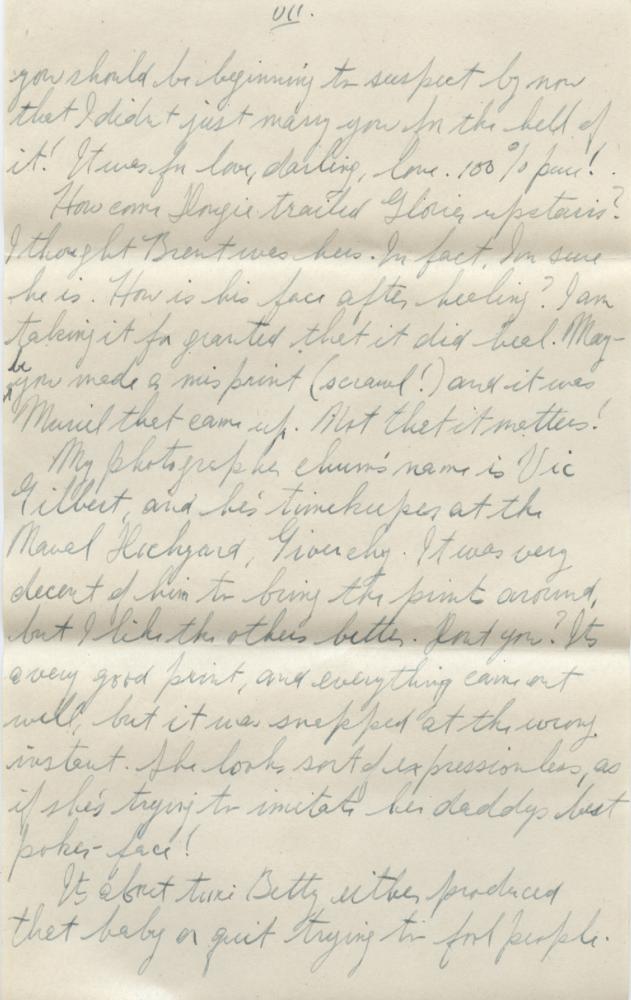 VII.
you should be beginning to suspect by now
that I didn't just marry you for the hell of
it! It was for love, darling, love. 100% pure!
How come Dougie trailed Glorier upstairs?
I thought Brent was hers. In fact, I'm sure
he is. How is his face after healing? I am
taking it for granted that it did heal. May-
be
you made a misprint (scrawl!) and it was
Muriel that came up. Not that it matters!
My photographer chum's name is Vic
Gilbert, and he's timekeeper at the
Naval Dockyard, Givenchy. It was very
decent of him to bring the prints around,
but I like the others better. Dont you? Its
a very good print, and everything came out
well, but it was snapped at the wrong
instant. She looks sort of expressionless, as
if she's trying to imitate her daddys best
poker-face!
Its about time Betty either produced
that baby or quit trying to fool people.